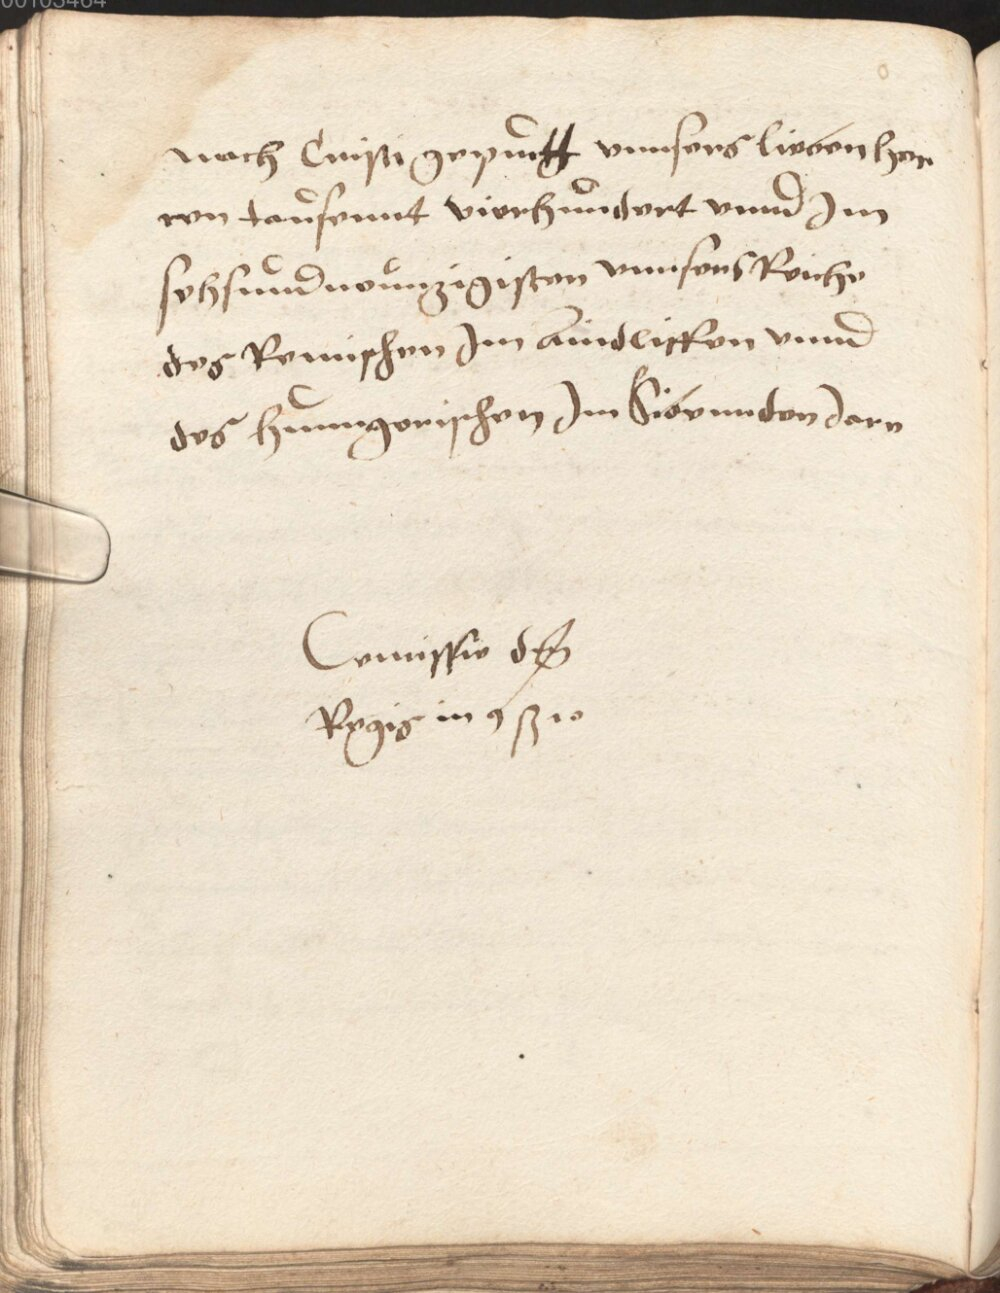 00105464
nach Cristi gepurtt vnnsers lieben her
ren tausennt vierhundert vnnd Im
sehsundneunzigisten vnnsers Reichs
des Romischen Im Aindlifften vnnd
des hunngerischen Im Sibennden Jarn
Comissio dni
Regis in 9silio